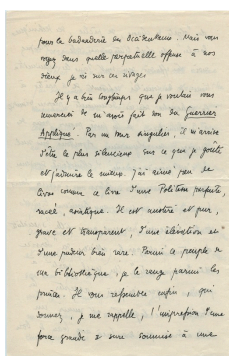 pour la badauderie des Occidentaux. Mais vous
voyez dans quelle perpétuelle offense à nos
dieux je vis sur ces rivages.
Il y a très longtemps que je voulais vous
remercier de m'avoir fait don du Guerrier
Appliqué. Par un tour singulier, il m'arrive
d'être le plus silencieux sur ce que je goûte
et j'admire le mieux. J'ai aimé peu de
livres comme ce livre d'une Politesse parfaite,
racée, asiatique. Il est austère et pur,
grave et transparent, d'une élévation et
d'une pudeur bien rare. Parmi le peuple de
ma bibliothèque, je le range parmi les
poètes. Il vous ressemble enfin, qui
donnez, je me rappelle, l'impression d'une
force grande et sûre soumise à une